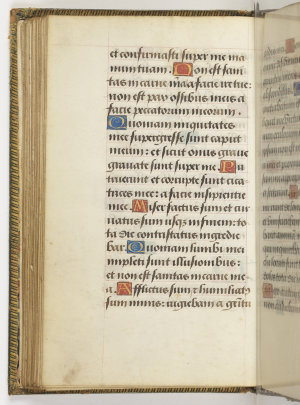 et confirmasti super me ma
num tuam. Non est sani
tas in carne mea a facie ire tue:
non est pax ossibus meis a
facie peccatorum meorum.
Quoniam iniquitates
mee supergresse sunt caput
meum: et sicut onus graue
grauate sunt super me. Pu
truerunt et corrupte sunt cica
trices mee: a facie insipientie
mee. Miser factus sum et cur
uatus sum usq3 in finem: to
ta die contristatus ingredie
bar. Quoniam lumbi mei
impleti sunt illusionibus:
et non est sanitas in carne me
a. Afflictus sum et humiliatus
sum nimis: rugiebam a gemitu